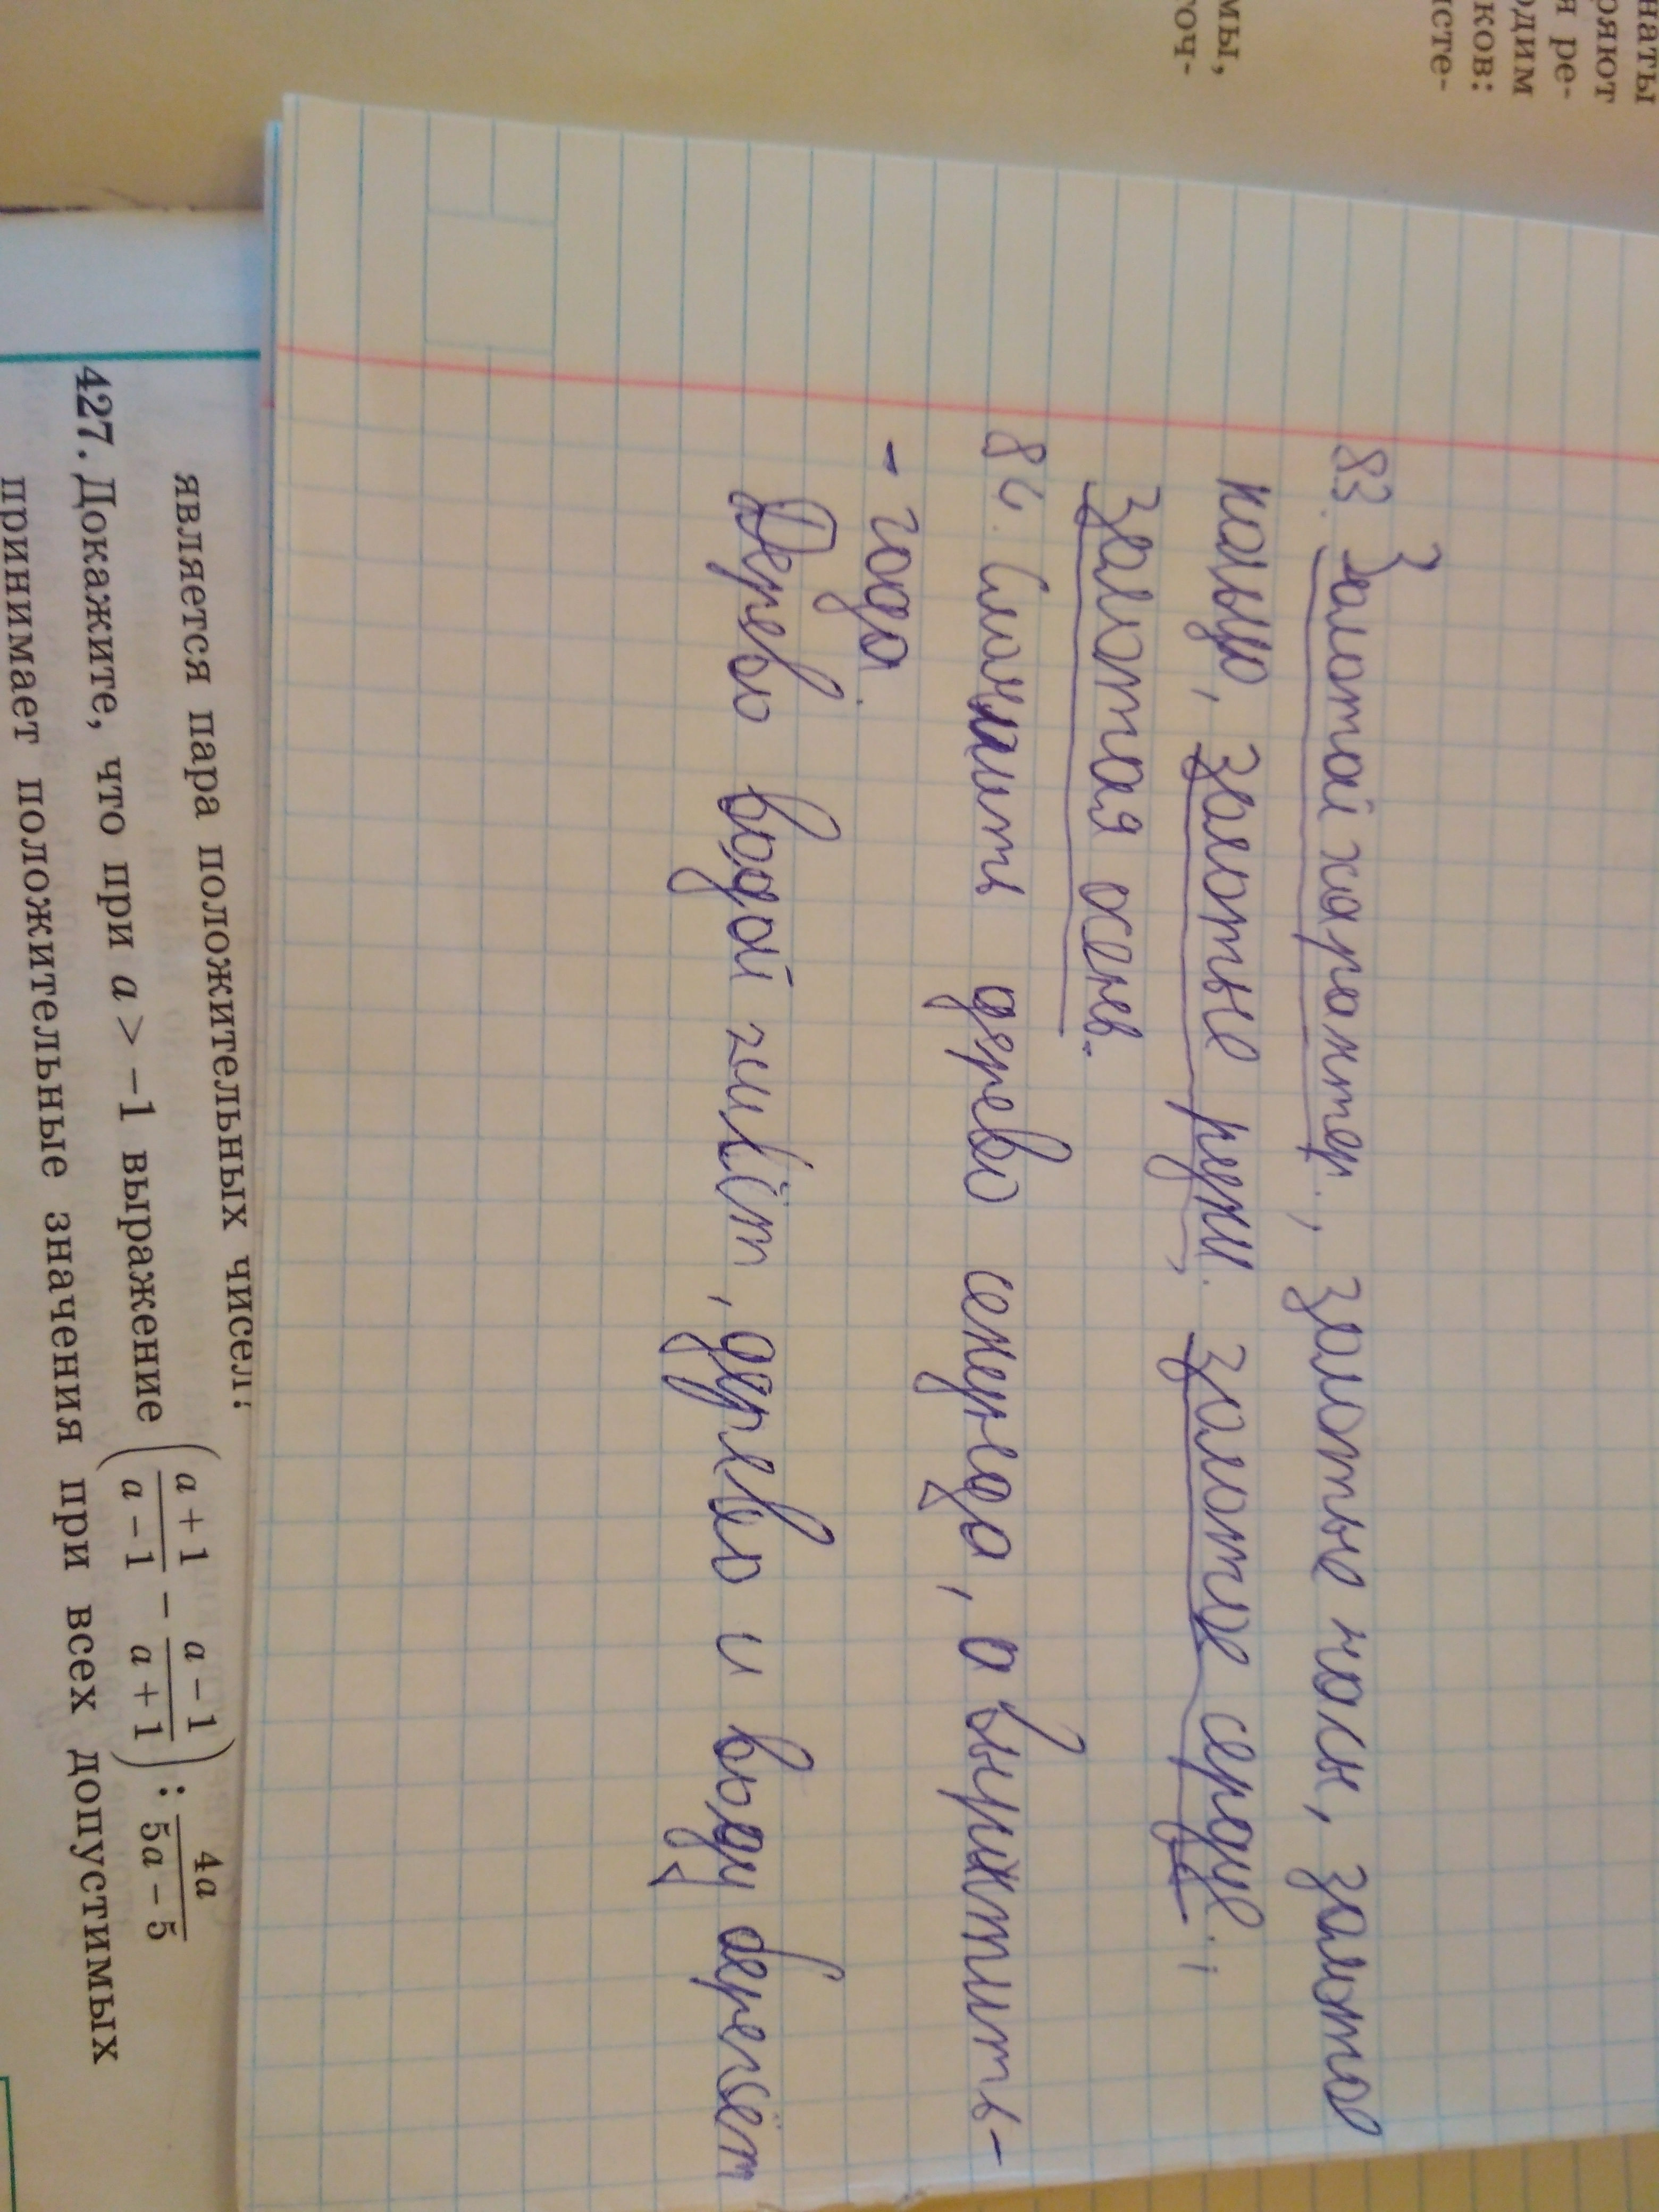 наты
ряют
я ре-
одим
ков:
исте-
мы,
точ-
83. Золотой характер, золотые часы, золотое
кольцо, золотые руки, золотое сердце,
золотая осень.
84. Сломать дерево секунда, а вырастить-
- года.
Дерево водой живёт, дерево и воду бережёт
является пара положительных чисел:
427. Докажите, что при a > −1 выражение (a + 1 / a − 1 − a − 1 / a + 1) : 4a / 5a − 5
принимает положительные значения при всех допустимых